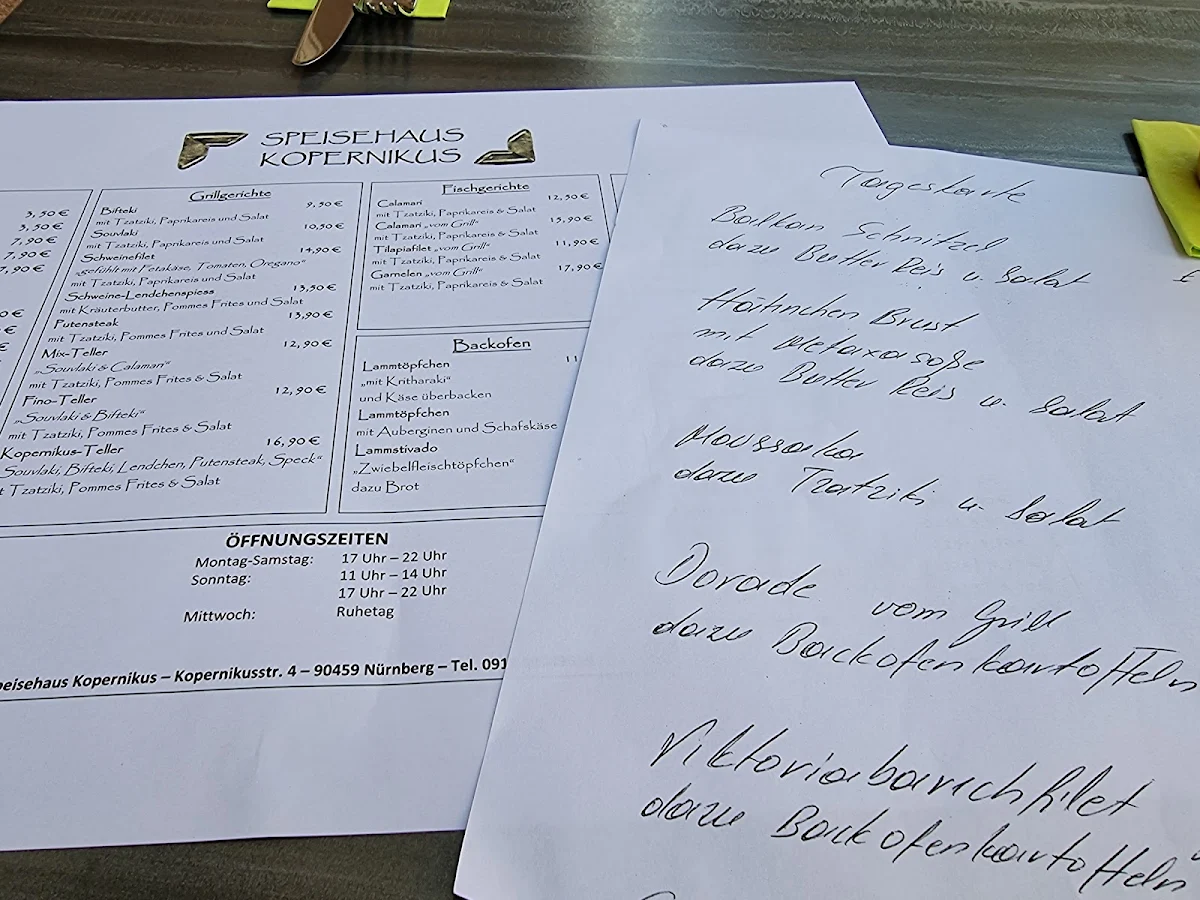 SPEISEHAUS
KOPERNIKUS
3,50 €
3,50 €
7,90 €
7,90 €
7,90 €
Grillgerichte
Bifteki 9,50 €
mit Tzatziki, Paprikareis und Salat
Souvlaki 10,50 €
mit Tzatziki, Paprikareis und Salat
Schweinefilet 14,90 €
„gefühlt mit Fetakäse, Tomaten, Oregano"
mit Tzatziki, Paprikareis und Salat
Schweine-Lendchenspiess 13,50 €
mit Kräuterbutter, Pommes Frites und Salat
Putensteak 13,90 €
mit Tzatziki, Pommes Frites und Salat
Mix-Teller 12,90 €
„Souvlaki & Calamari"
mit Tzatziki, Pommes Frites & Salat
Fino-Teller 12,90 €
„Souvlaki & Bifteki"
mit Tzatziki, Pommes Frites & Salat
Kopernikus-Teller 16,90 €
Souvlaki, Bifteki, Lendchen, Putensteak, Speck"
t Tzatziki, Pommes Frites & Salat
Fischgerichte
Calamari 12,50 €
mit Tzatziki, Paprikareis & Salat
Calamari „vom Grill" 15,90 €
mit Tzatziki, Paprikareis & Salat
Tilapiafilet „vom Grill" 11,90 €
mit Tzatziki, Paprikareis & Salat
Garnelen „vom Grill" 17,90 €
mit Tzatziki, Paprikareis & Salat
Backofen
Lammtöpfchen 11
„mit Kritharaki"
und Käse überbacken
Lammtöpfchen
mit Auberginen und Schafskäse
Lammstivado
„Zwiebelfleischtöpfchen"
dazu Brot
ÖFFNUNGSZEITEN
Montag-Samstag: 17 Uhr – 22 Uhr
Sonntag: 11 Uhr – 14 Uhr
17 Uhr – 22 Uhr
Mittwoch: Ruhetag
peisehaus Kopernikus – Kopernikusstr. 4 – 90459 Nürnberg – Tel. 091
Tageskarte
Balkan Schnitzel
dazu Butter Reis u. Salat
Hähnchen Brust
mit Metaxasoße
dazu Butter Reis u. Salat
Moussaka
dazu Tzatziki u. Salat
Dorade vom Grill
dazu Backofenkartoffeln
Viktoriabarschfilet
dazu Backofenkartoffeln